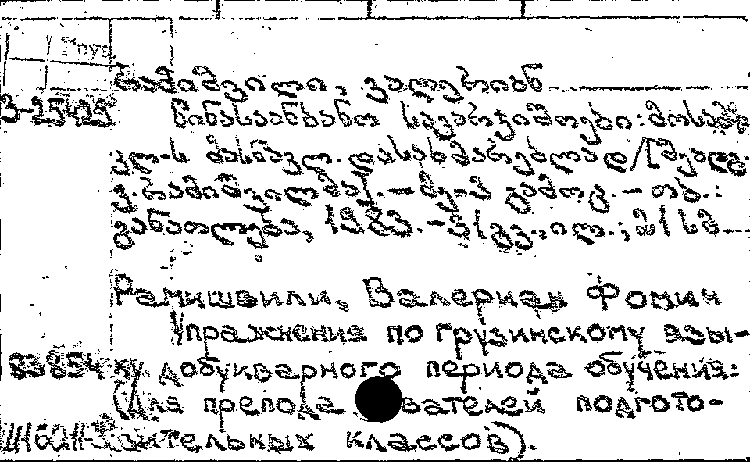 Груз.
რამიშვილი, ვალერიან
წინასაანბანო სავარჯიშოები: მოსამზ.
კლ-ს მასწავლ. დასახმარებლად/[შეადგ.
ვ. რამიშვილმა]. – მე-3 გამოც. – თბ.:
განათლება, 1983. – გვ., ილ.; 21 სმ
Рамишвили, Валериан Фомич
Упражнения по грузинскому язы-
83-854 ку добукварного периода обучения:
(Для препода вателей подгото-
вительных классов).